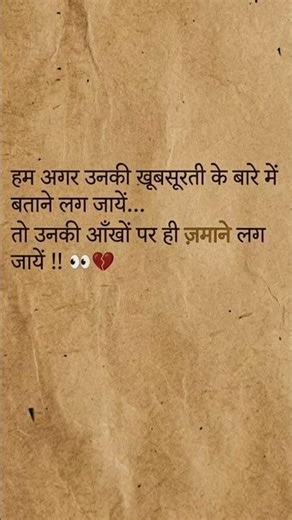 हम अगर उनकी ख़ूबसूरती के बारे में
बताने लग जायें...
तो उनकी आँखों पर ही ज़माने लग
जायें !! 👀💔